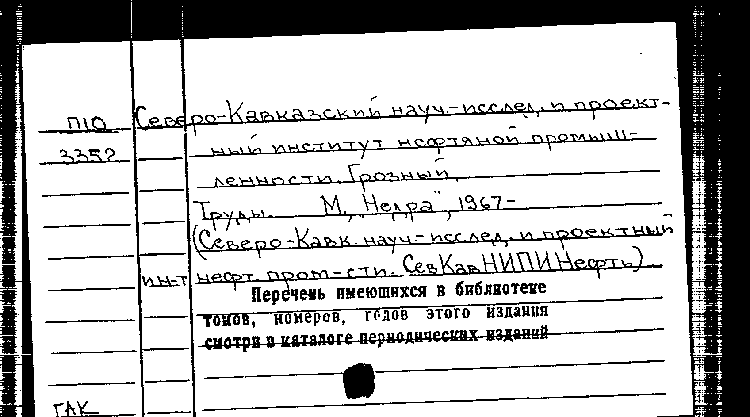 П10 Северо-Кавказский науч.-исслед. и проект-
3352 ный институт нефтяной промыш-
ленности. Грозный.
Труды. М., "Недра", 1967-
(Северо-Кавк. науч.-исслед. и проектный
ин-т нефт. пром-сти. СевКавНИПИНефть)
Перечень имеющихся в библиотеке
томов, номеров, годов этого издания
смотри в каталоге периодических изданий
ГАК